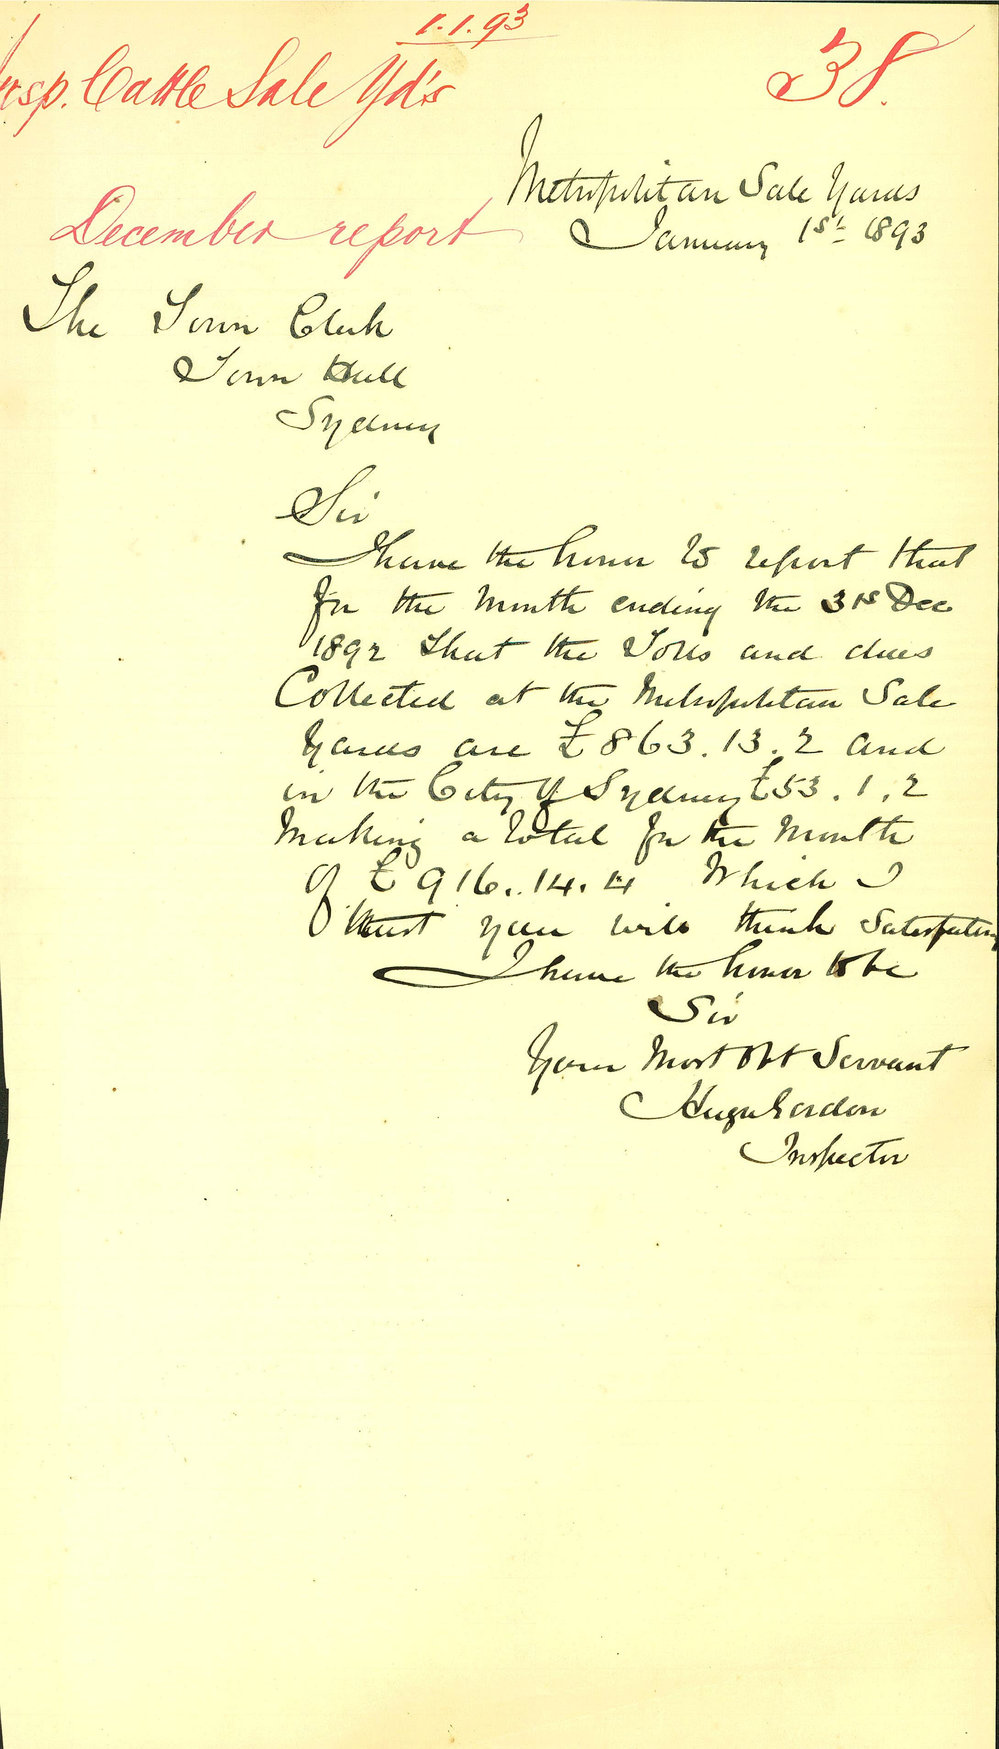 1.1.93
Insp. Cattle Sale Yd's
38.
Metropolitan Sale Yards
January 1st 1893
December report
The Town Clerk
Town Hall
Sydney
Sir
I have the honor to report that
for the Month ending the 31st Dec
1892 that the Tolls and dues
Collected at the Metropolitan Sale
Yards are £863.13.2 and
in the City of Sydney £53.1.2
Making a total for the Month
of £916.14.4 Which I
trust you will think Satisfactory
I have the honor to be
Sir
Your Most Obt Servant
Hugh Gordon
Inspector